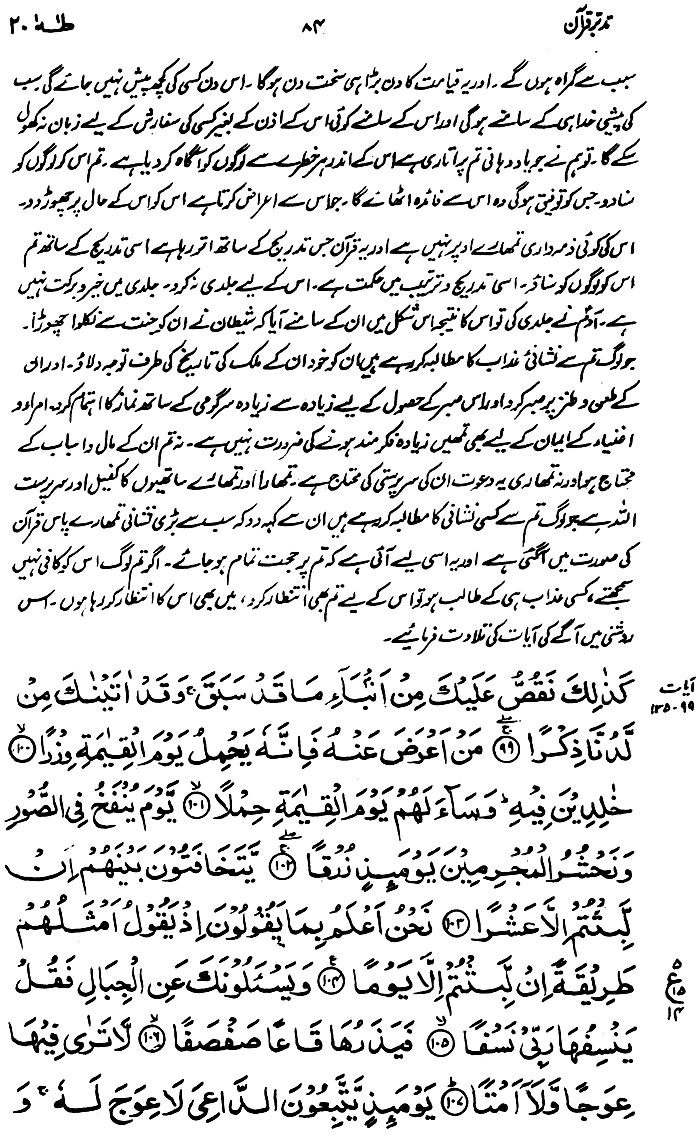 تدبر قرآن ۸۴ طٰهٰ ۲۰
سبب سے گمراہ ہوں گے ۔ اور یہ قیامت کا دن بڑا ہی سخت دن ہوگا ۔ اس دن کسی کی کچھ پیش نہیں جائے گی ۔ سب
کی پیشی خدا ہی کے سامنے ہوگی اور اس کے سامنے کوئی اس کے اذن کے بغیر کسی کی سفارش کے لیے زبان نہ کھول
سکے گا ۔ تو ہم نے جو یاد دہانی تم پر اتاری ہے اس کے اندر ہر خطرے سے لوگوں کو آگاہ کر دیا ہے ۔ تم اس کو لوگوں کو
سنا دو ۔ جس کو توفیق ہوگی وہ اس سے فائدہ اٹھائے گا ۔ جو اس سے اعراض کرتا ہے اس کو اس کے حال پر چھوڑ دو ۔
اس کی کوئی ذمہ داری تمھارے اوپر نہیں ہے اور یہ قرآن جس تدریج کے ساتھ اتر رہا ہے اسی تدریج کے ساتھ تم
اس کو لوگوں کو سناؤ ۔ اسی تدریج و ترتیب میں حکمت ہے ۔ اس کے لیے جلدی نہ کرو ۔ جلدی میں خیر و برکت نہیں
ہے ۔ آدمؑ نے جلدی کی تو اس کا نتیجہ اس شکل میں ان کے سامنے آیا کہ شیطان نے ان کو جنت سے نکلوا چھوڑا ۔
جو لوگ تم سے نشانیٔ عذاب کا مطالبہ کر رہے ہیں ان کو خود ان کے ملک کی تاریخ کی طرف توجہ دلاؤ ۔ اور ان
کے طعن و طنز پر صبر کرو اور اس صبر کے حصول کے لیے زیادہ سے زیادہ سرگرمی کے ساتھ نماز کا اہتمام کرو ۔ امراء و
اغنیاء کے ایمان کے لیے بھی تمھیں زیادہ فکر مند ہونے کی ضرورت نہیں ہے ۔ نہ تم ان کے مال و اسباب کے
محتاج ہو اور نہ تمھاری یہ دعوت ان کی سرپرستی کی محتاج ہے ۔ تمھارا اور تمھارے ساتھیوں کا کفیل اور سرپرست
اللہ ہے جو لوگ تم سے کسی نشانی کا مطالبہ کر رہے ہیں ان سے کہہ دو کہ سب سے بڑی نشانی تمھارے پاس قرآن
کی صورت میں آ گئی ہے اور یہ اسی لیے آئی ہے کہ تم پر حجت تمام ہو جائے ۔ اگر تم لوگ اس کو کافی نہیں
سمجھتے ، کسی عذاب ہی کے طالب ہو تو اس کے لیے تم بھی انتظار کرو ، میں بھی اس کا انتظار کر رہا ہوں ۔ اس
روشنی میں آگے کی آیات کی تلاوت فرمائیے ۔
آیات
۹۹-۱۳۵
كَذٰلِكَ نَقُصُّ عَلَيْكَ مِنْ اَنْۢبَآءِ مَا قَدْ سَبَقَ ۚ وَقَدْ اٰتَيْنٰكَ مِنْ
لَّدُنَّا ذِكْرًا ۹۹ مَنْ اَعْرَضَ عَنْهُ فَاِنَّهٗ يَحْمِلُ يَوْمَ الْقِيٰمَةِ وِزْرًا ۱۰۰
خٰلِدِيْنَ فِيْهِ ؕ وَسَآءَ لَهُمْ يَوْمَ الْقِيٰمَةِ حِمْلًا ۱۰۱ يَّوْمَ يُنْفَخُ فِى الصُّوْرِ
وَنَحْشُرُ الْمُجْرِمِيْنَ يَوْمَىِٕذٍ زُرْقًا ۱۰۲ يَّتَخَافَتُوْنَ بَيْنَهُمْ اِنْ
لَّبِثْتُمْ اِلَّا عَشْرًا ۱۰۳ نَحْنُ اَعْلَمُ بِمَا يَقُوْلُوْنَ اِذْ يَقُوْلُ اَمْثَلُهُمْ
طَرِيْقَةً اِنْ لَّبِثْتُمْ اِلَّا يَوْمًا ۱۰۴ وَيَسْـَٔلُوْنَكَ عَنِ الْجِبَالِ فَقُلْ
۵
ع
۱۵
۱۴
يَنْسِفُهَا رَبِّىْ نَسْفًا ۱۰۵ فَيَذَرُهَا قَاعًا صَفْصَفًا ۱۰۶ لَّا تَرٰى فِيْهَا
عِوَجًا وَّلَآ اَمْتًا ۱۰۷ يَوْمَىِٕذٍ يَّتَّبِعُوْنَ الدَّاعِىَ لَا عِوَجَ لَهٗ ۚ وَ